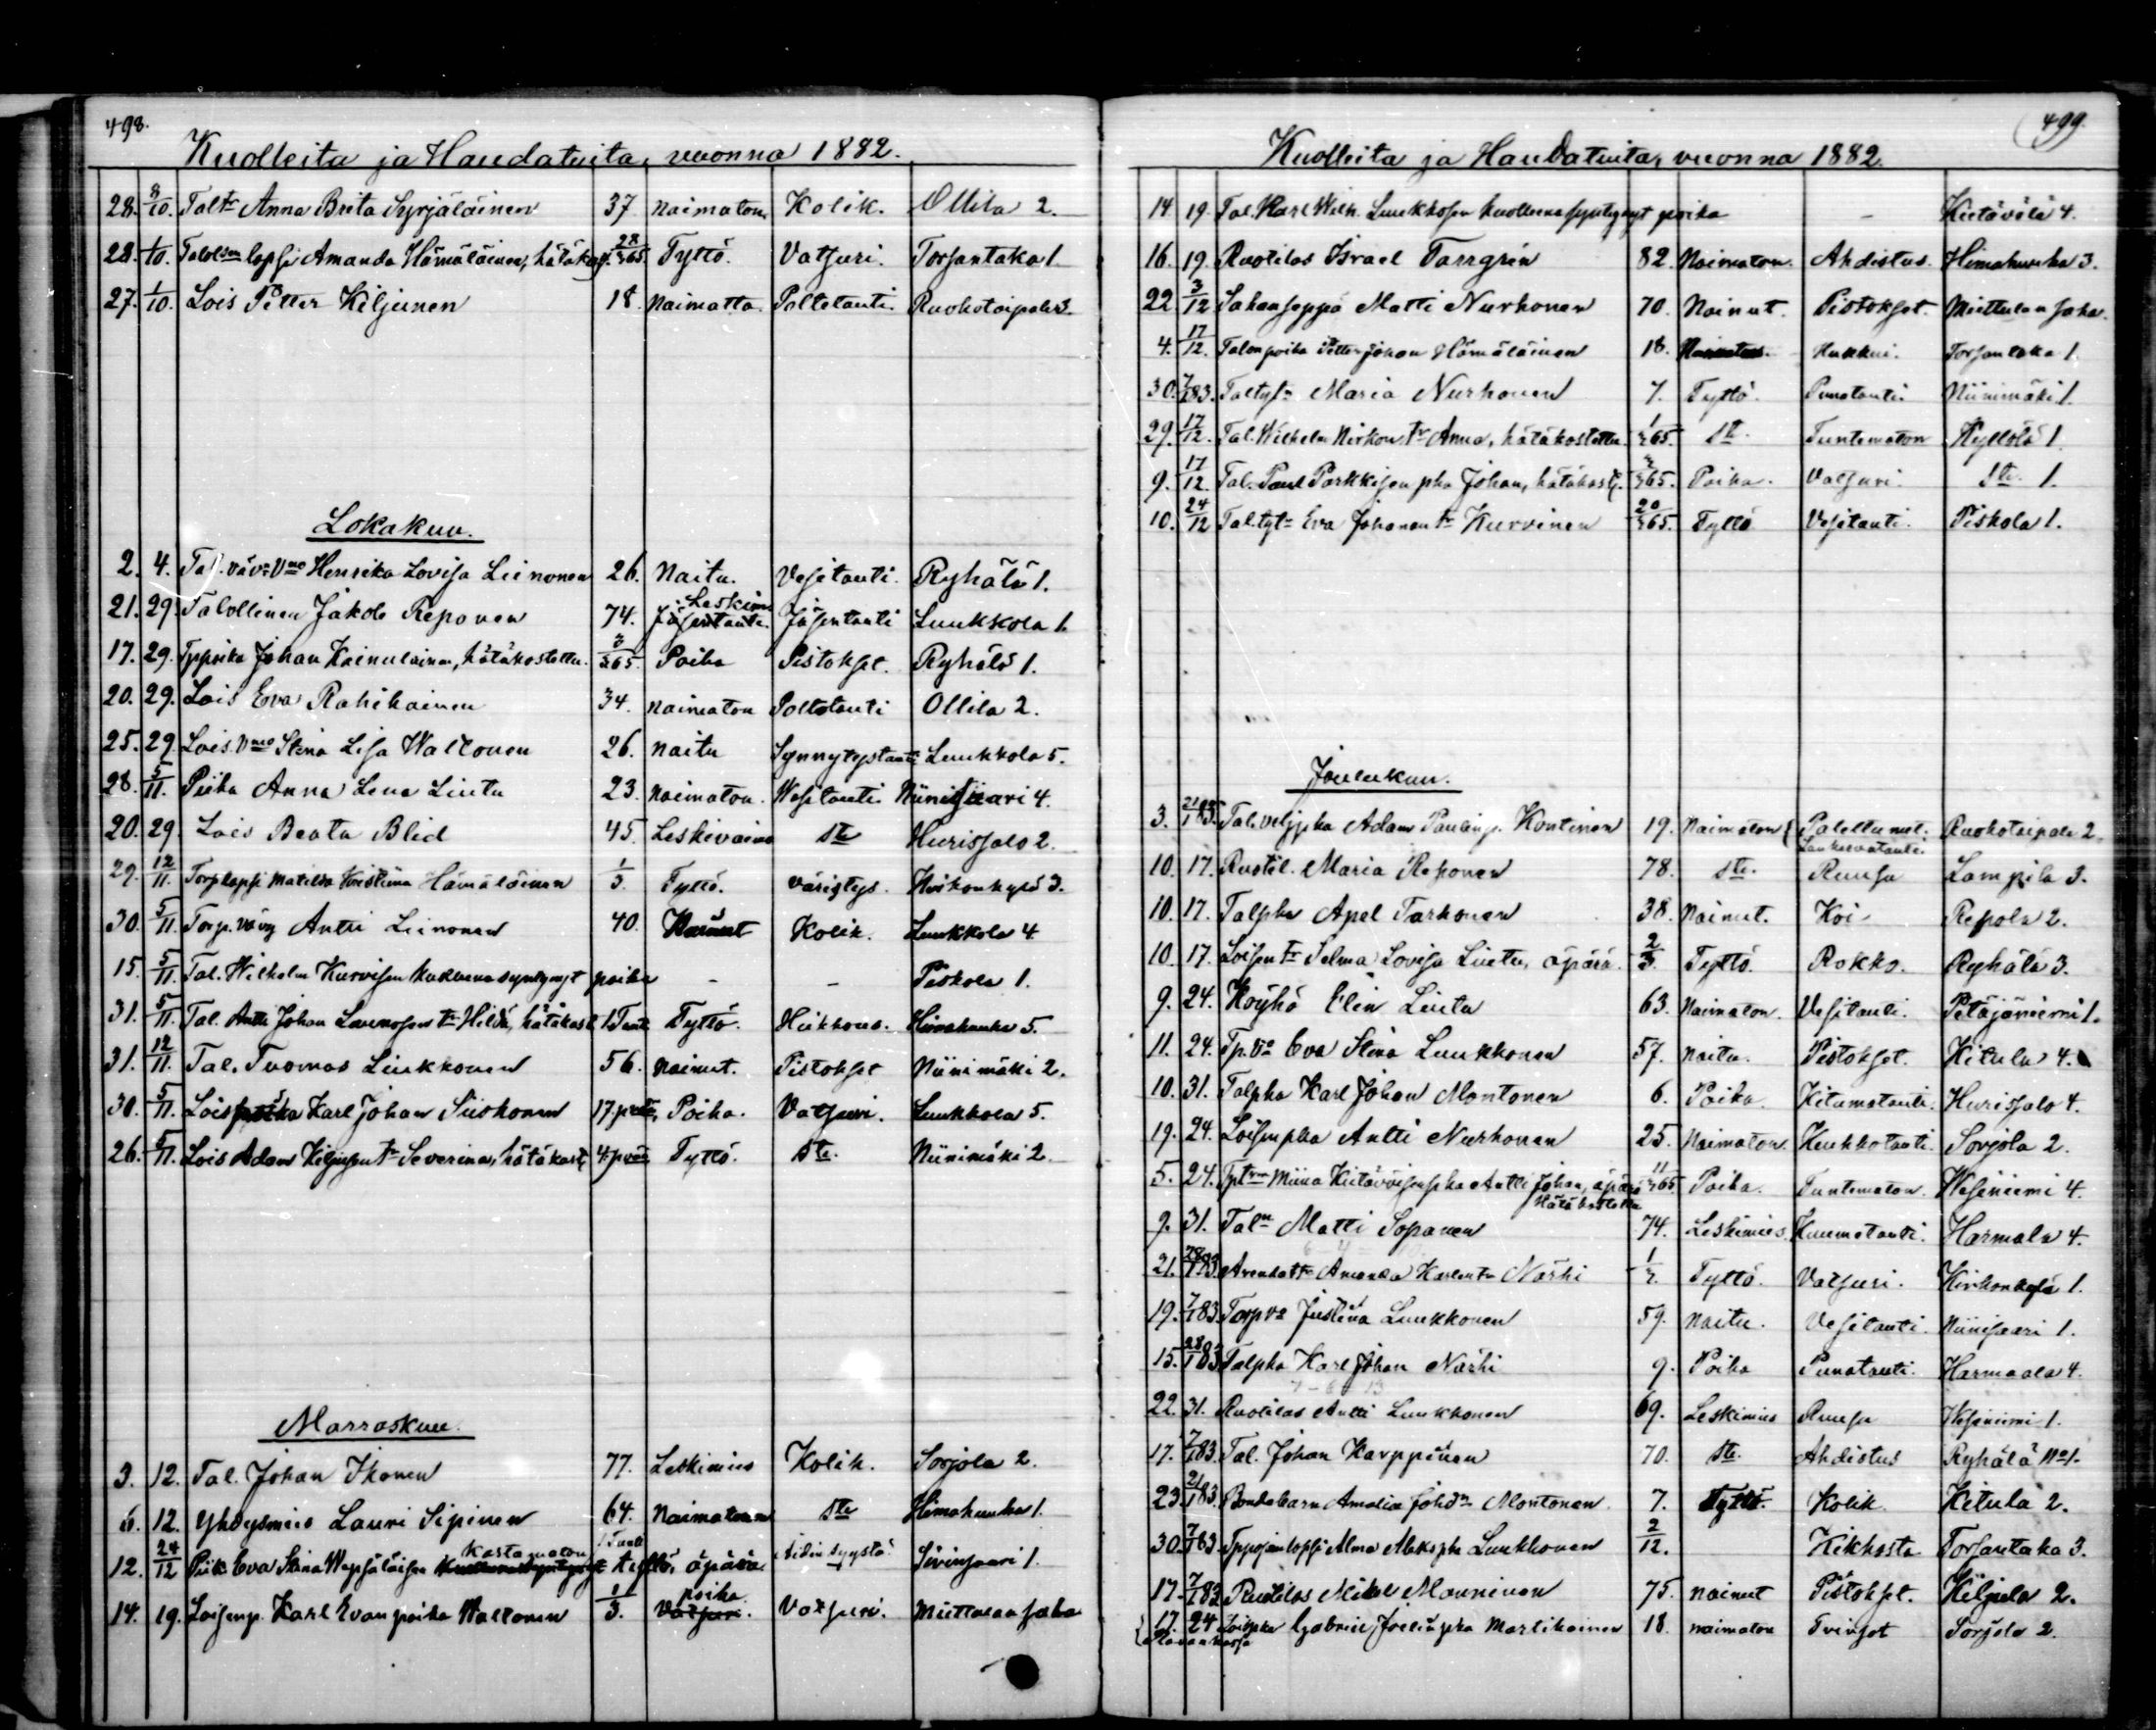 498.
Kuolleita ja Haudatuita, vuonna 1882.
28. 8/10. Taltr Anna Brita Syrjäläinen 37 naimaton Kolik. Ollila 2.
28. 1/10. lapsi Amanda Hämäläinen, hätäk. 28/365 Tyttö. Vatsuri. Torsantaka 1.
27. 1/10. Lois Petter Kiljunen 18. naimatta. Poltetauti. Ruokotaipale 3.
Lokakuu.
2. 4. Tal. väv. Vmo Henrika Lovisa Leinonen 26. Naitu. Vesitauti. Ryhälä 1.
21. 29. Talollinen Jakob Reponen 74. Leskim Jäsentauti Luukkola 1.
17. 29. Johan Kainulainen, hätäkastettu. 3/365. Poika Pistokset. Ryhälä 1.
20. 29. Lois Eva Rahikainen 34. naimaton Poltotauti Ollila 2.
25. 29. Lois. Vmo Stina Lisa Waltonen 26. naitu Synnytystauti Luukkola 5.
28. 5/11. Piika Anna Lena Liuta 23. naimaton. Wesitauti Niinisaari 4.
20. 29. Lois Beata Blid 45. Leskivaimo Ste Hurissalo 2.
29. 12/11. Torp lapsi Matilda Kristiina Hämäläinen 1/3. Tyttö. väristys. Kirkonkylä 3.
30. 5/11. Torp. väv Antti Leinonen 40. Nainut Kolik. Luukkola 4
15. 5/11. Tal. Wilhelm Kurvisen kuolleena syntynyt poika - - Piskola 1.
31. 5/11. Tal. Antti Johan Laurosen tr Hilda, hätäkast 1 Tunt Tyttö. Hikkous. Himahanka 5.
31. 12/11. Tal. Tuomas Liukkonen 56. nainut. Pistokset Niinimäki 2.
30. 5/11. Loispoika Karl Johan Siiskonen 17. Poika. Vatsuri. Luukkola 5.
26. 5/11. Lois Adam Kiljusen tr Severina, hätäkast 4. Tyttö. Ste. Niinimäki 2.
Marraskuu.
3. 12. Tal. Johan Ikonen 77. Leskimies Kolik. Sorjola 2.
6. 12. Yhdysmies Lauri Sipinen 64. Naimaton Ste Himahanka 1.
12. 24/12 Piik Eva Stina kastamaton tyttö, äpärä Äidin syystä Sivinsaari 1.
14. 19. Loisenp. Karl Evan poika Waltonen 1/3. poika Vatsuri. Miettulan saha
499.
Kuolleita ja Haudatuita, vuonna 1882.
14 19. Tal. Karl Wilh. Luukkosen kuolleena syntynyt poika - Kietävälä 4.
16. 19. Ruotilas Israel Tarrgrén 82. Naimaton. Ahdistus. Himahanka 3.
22. 3/12 Sahanseppä Matti Nurhonen 70. Nainut. Pistokset. Miettulan saha.
4. 17/12. Talon poika Petter Johan Hämäläinen 18. Hukkui. Torsantaka 1.
30. 7/1 83. Maria Nurhonen 7. Tyttö. Punatauti. Niinimäki 1.
29. 17/12. Tal. Wilhelm tr Anna, hätäkastettu. 1/365. Ste. Tuntematon Kyllölä 1.
9. 17/12. Tal. Paul Parkkisen pka Johan, hätäkast. 365. Poika. Vatsuri. Ste. 1.
10. 24/12 Eva Johanan tr Kurvinen 20/365. Tyttö Vesitauti. Piskola 1.
Joulukuu.
3. 21/1 83. Tal. velj pka Adam Paulinp. Kontinen 19. Naimaton { Palettunut. Ruokotaipale 2.
10. 17. Ruotil. Maria Reponen 78. Ste. Ruusu Lampila 3.
10. 17. Talpka Apel Tarkonen 38. Nainut. Koi Repola 2.
10. 17. Loisen tr Selma Lovisa Liuta, äpärä. 2/3. Tyttö. Rokko. Ryhälä 3.
9. 24. Köyhä Elin Liuta 63. Naimaton. Vesitauti. Petäjäniemi 1.
11. 24. Tp. Vo Eva Stina Luukkonen 57. naitu. Pistokset. Kitula 4.
10. 31. Talpka Karl Johan Montonen 6. Poika. Kitumatauti. Hurissalo 4.
19. 24. Loisenpka Antti Nurhonen 25. Naimaton. Keuhkotauti. Sorjola 2.
5. 24. Miina pka Antti Johan, äpärä Hätäkastettu 11/365. Poika. Tuntematon. Wesiniemi 4.
9. 31. Matti Sopanen 74. Leskimies. Kuumatauti. Harmala 4.
21. 28/1 83. Amanda Karlin tr Närhi 1/2. Tyttö. Vatsuri. Kirkonkylä 1.
19. 7/1 83. Torp vo Justiina Luukkonen 59. Naitu. Vesitauti. Niinisaari 1.
15. 28/1 83. Talpka Karl Johan Närhi 9. Poika Punatauti. Harmaala 4.
22. 31. Ruotilas Antti Luukkonen 69. Leskimies Ruusu Wesiniemi 1.
17. 7/1 83. Tal. Johan Karppinen 70. Ste. Ahdistus Ryhälä No 1.
23. 21/1 83. Bondebarn Amalia Johdr Montonen 7. Tyttö. Kolik. Kitula 2.
30. 7/1 83. lapsi Alma Luukkonen 2/12. Kikkosta Torsantaka 3.
17. 7/1 83. Ruotilas Mikael Manninen 75. nainut Pistokset. Kiljula 2.
{ 17. 24 Loispka Gabriel Joelin pka Martikainen 18. naimaton Tvinsot Sorjola 2.